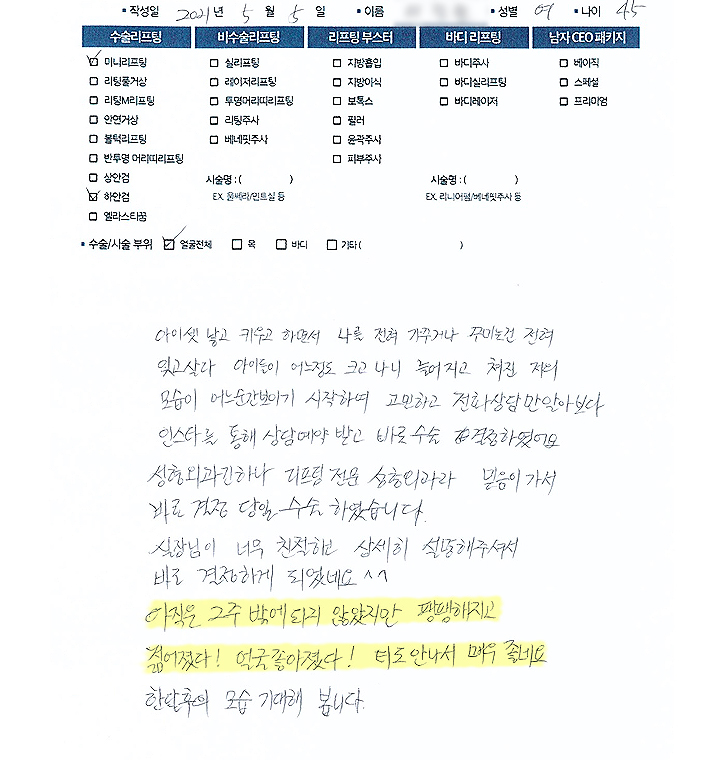 ▪ 작성일 2021 년 5 월 5 일 ▪ 이름 ▪ 성별 여 ▪ 나이 45
수술리프팅 비수술리프팅 리프팅 부스터 바디 리프팅 남자 CEO 패키지
☑ 미니리프팅 ☐ 실리프팅 ☐ 지방흡입 ☐ 바디주사 ☐ 베이직
☐ 리팅풀거상 ☐ 레이저리프팅 ☐ 지방이식 ☐ 바디실리프팅 ☐ 스페셜
☐ 리팅M리프팅 ☐ 투명머리띠리프팅 ☐ 보톡스 ☐ 바디레이저 ☐ 프리미엄
☐ 안면거상 ☐ 리팅주사 ☐ 필러
☐ 볼턱리프팅 ☐ 베네핏주사 ☐ 윤곽주사
☐ 반투명 머리띠리프팅 ☐ 피부주사
☐ 상안검 시술명 : ( ) 시술명 : ( )
☑ 하안검 EX. 울쎄라/민트실 등 EX. 리니어펌/베네핏주사 등
☐ 엘라스티꿈
▪ 수술/시술 부위 ☑ 얼굴전체 ☐ 목 ☐ 바디 ☐ 기타 ( )
아이셋 낳고 키우고 하면서 나를 전혀 가꾸거나 꾸미는건 전혀
잊고살다 아이들이 어느정도 크고 나니 늘어지고 쳐진 저의
모습이 어느순간보이기 시작하여 고민하고 전화상담만알아보다
인스타를 통해 상담예약 받고 바로수술 결정하였어요
성형외과긴하나 리프팅 전문 성형외과라 믿음이가서
바로 결정 당일 수술 하였습니다.
실장님이 너무 친절하고 상세히 설명해주셔서
바로 결정하게 되었네요 ^^
아직은 그주 밖에되지 않았지만 팽팽해지고
젊어졌다! 얼굴좋아졌다! 티도안나서 매우 좋네요
한달후의 모습 기대해 봅니다.